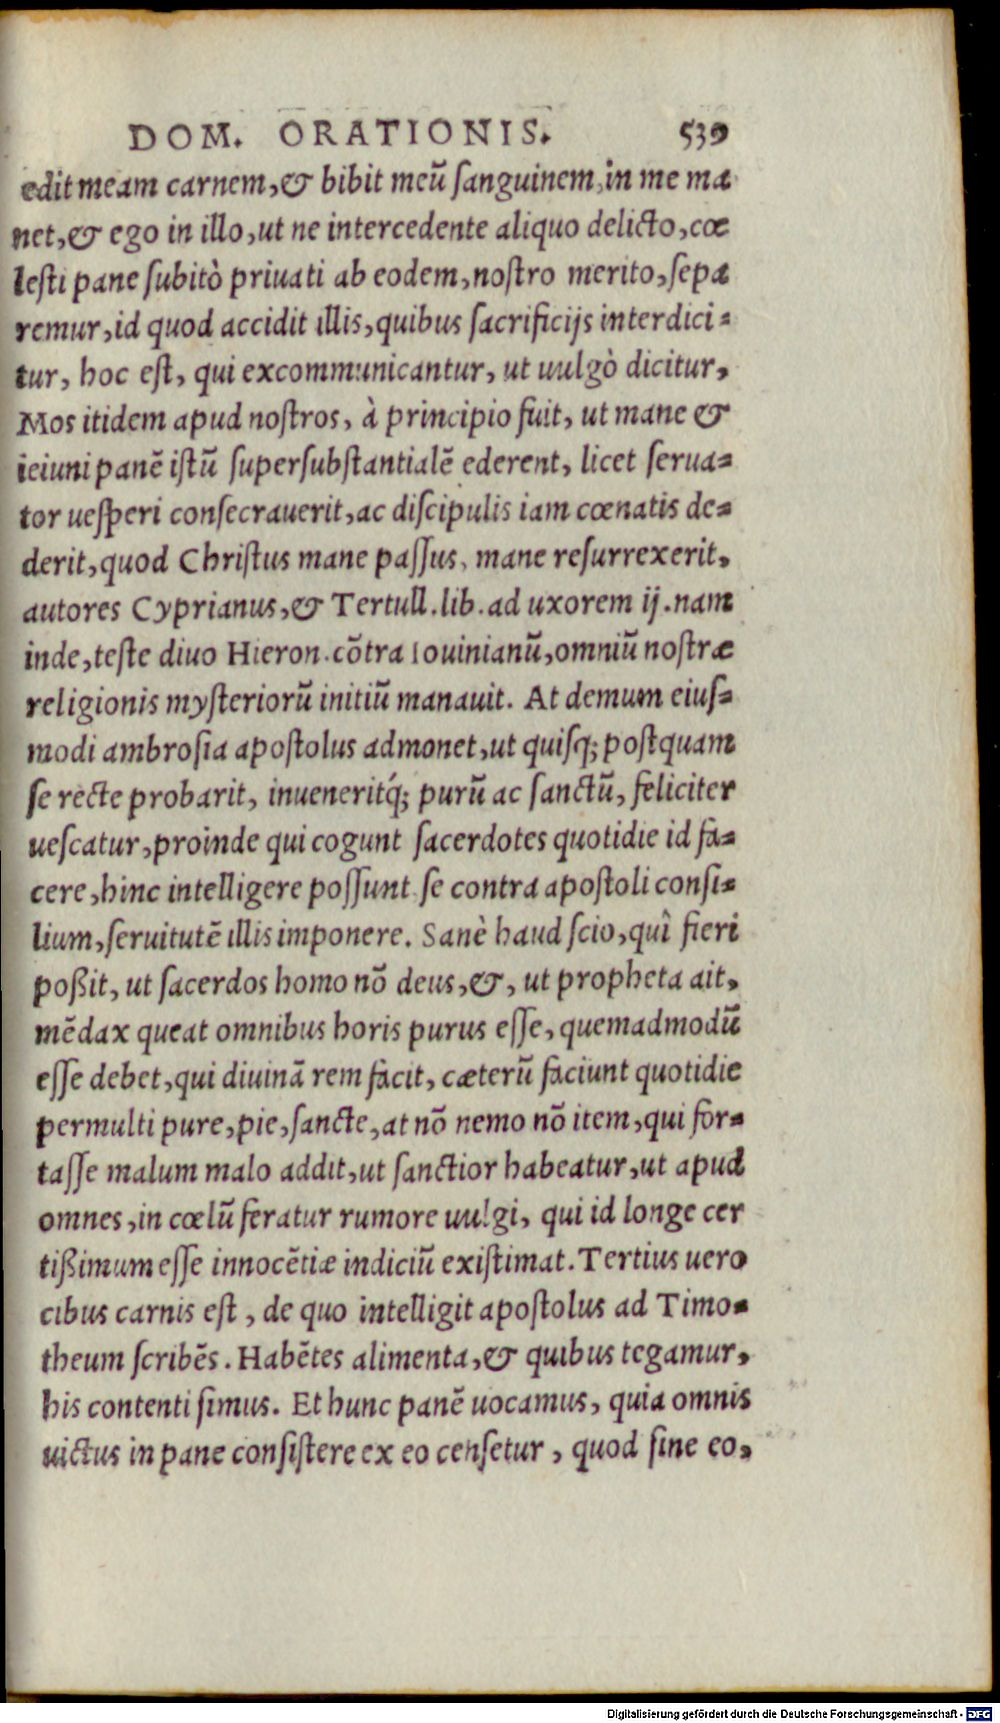 DOM. ORATIONIS. 539
edit meam carnem, & bibit meũ ſanguinem, in me ma
net, & ego in illo, ut ne intercedente aliquo delicto, cœ
leſti pane ſubitò priuati ab eodem, noſtro merito, ſepa
remur, id quod accidit illis, quibus ſacrificijs interdici-
tur, hoc eſt, qui excommunicantur, ut uulgò dicitur,
Mos itidem apud noſtros, à principio fuit, ut mane &
ieiuni panẽ iſtũ ſuperſubſtantialẽ ederent, licet ſerua-
tor ueſperi conſecrauerit, ac diſcipulis iam cœnatis de-
derit, quod Chriſtus mane paſſus, mane reſurrexerit,
autores Cyprianus, & Tertull. lib. ad uxorem ij. nam
inde, teſte diuo Hieron. cõtra Iouinianũ, omniũ noſtræ
religionis myſteriorũ initiũ manauit. At demum eiuſ-
modi ambroſia apoſtolus admonet, ut quiſq; poſtquam
ſe recte probarit, inueneritq́; purũ ac ſanctũ, feliciter
ueſcatur, proinde qui cogunt ſacerdotes quotidie id fa-
cere, hinc intelligere poſſunt ſe contra apoſtoli conſi-
lium, ſeruitutẽ illis imponere. Sanè haud ſcio, quî fieri
poßit, ut ſacerdos homo nõ deus, &, ut propheta ait,
mẽdax queat omnibus horis purus eſſe, quemadmodũ
eſſe debet, qui diuinã rem facit, cæterũ faciunt quotidie
permulti pure, pie, ſancte, at nõ nemo nõ item, qui for-
taſſe malum malo addit, ut ſanctior habeatur, ut apud
omnes, in cœlũ feratur rumore uulgi, qui id longe cer
tißimum eſſe innocẽtiæ indiciũ exiſtimat. Tertius uero
cibus carnis eſt, de quo intelligit apoſtolus ad Timo-
theum ſcribẽs. Habẽtes alimenta, & quibus tegamur,
his contenti ſimus. Et hunc panẽ uocamus, quia omnis
uictus in pane conſiſtere ex eo cenſetur, quod ſine eo,
Digitalisierung gefördert durch die Deutsche Forschungsgemeinschaft - DFG